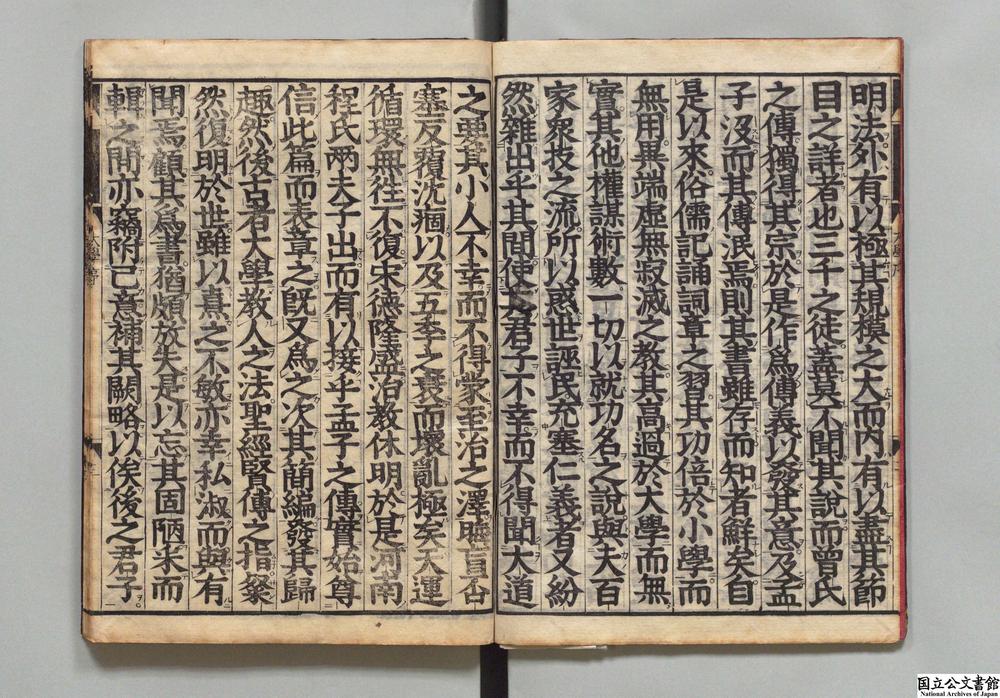 明法外有以極其規模之大而内有以盡其節
目之詳者也三千之徒蓋莫不聞其說而曾氏
之傳獨得其宗於是作爲傳義以發其意及孟
子沒而其傳泯焉則其書雖存而知者鮮矣自
是以來俗儒記誦詞章之習其功倍於小學而
無用異端虛無寂滅之教其高過於大學而無
實其他權謀術數一切以就功名之說與夫百
家衆技之流所以惑世誣民充塞仁義者又紛
然雜出乎其間使其君子不幸而不得聞大道
之要其小人不幸而不得蒙至治之澤晦盲否
塞反覆沈痼以及五季之衰而壞亂極矣天運
循環無往不復宋德隆盛治教休明於是河南
程氏兩夫子出而有以接乎孟子之傳實始尊
信此篇而表章之既又爲之次其簡編發其歸
趣然後古者大學教人之法聖經賢傳之指粲
然復明於世雖以熹之不敏亦幸私淑而與有
聞焉顧其爲書猶頗放失是以忘其固陋采而
輯之間亦竊附己意補其闕略以俟後之君子
国立公文書館
National Archives of Japan